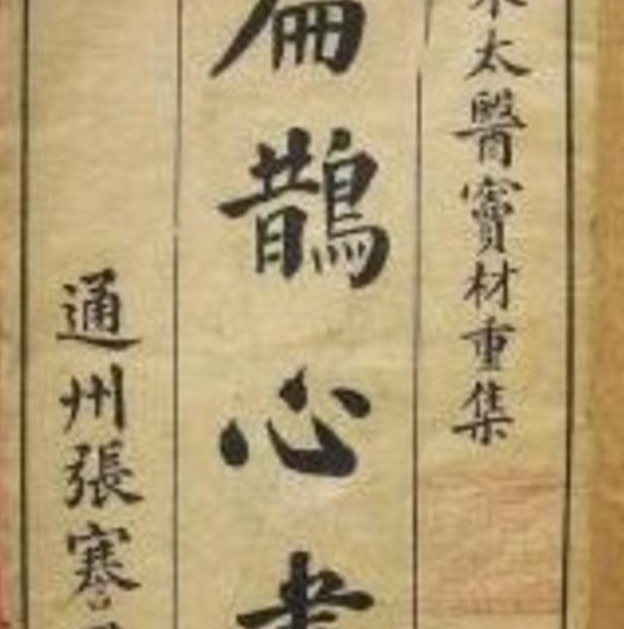 宋太醫竇材重集
扁鵲心書
通州張謇